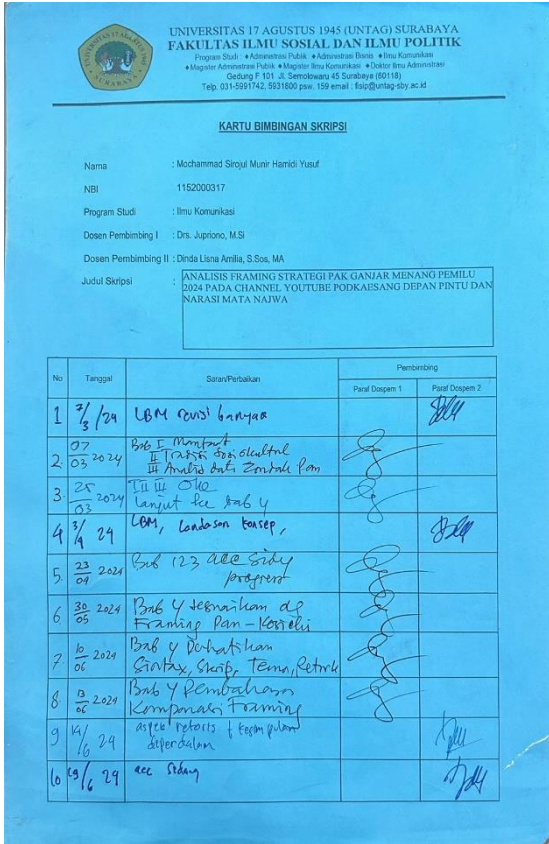 UNIVERSITAS 17 AGUSTUS 1945 (UNTAG) SURABAYA
FAKULTAS ILMU SOSIAL DAN ILMU POLITIK
Program Studi : ♦Administrasi Publik ♦Administrasi Bisnis ♦Ilmu Komunikasi
♦Magister Administrasi Publik ♦Magister Ilmu Komunikasi ♦Doktor Ilmu Administrasi
Gedung F 101 Jl. Semolowaru 45 Surabaya (60118)
Telp. 031-5991742, 5931800 psw. 159 email : fisip@untag-sby.ac.id
KARTU BIMBINGAN SKRIPSI
Nama : Mochammad Sirojul Munir Hamidi Yusuf
NBI 1152000317
Program Studi : Ilmu Komunikasi
Dosen Pembimbing I : Drs. Jupriono, M.Si
Dosen Pembimbing II : Dinda Lisna Amilia, S.Sos, MA
Judul Skripsi : ANALISIS FRAMING STRATEGI PAK GANJAR MENANG PEMILU
2024 PADA CHANNEL YOUTUBE PODKAESANG DEPAN PINTU DAN
NARASI MATA NAJWA
No Tanggal Saran/Perbaikan Pembimbing
Paraf Dospem 1 Paraf Dospem 2
1 7/3/24 LBM revisi banyak
2. 07/03 2024 Bab I Manfaat
II Tradisi Sosiokultural
III Analis data Pan
3. 25/03 2024 II III Oke
lanjut ke bab 4
4 3/4 24 LBM, Landasan konsep,
5. 23/04 2024 Bab 123 acc Sidg
progress
6. 30/05 2024 Bab 4 sesuaikan dg
Framing Pan-Kosicki
7. 10/06 2024 Bab 4 Perhatikan
Sintax, Skrip, Tema, Retorik
8 13/06 2024 Bab 4 Pembahasan
Komparasi Framing
9 14/6 24 aspek retoris + kesimpulan
diperdalam
10 19/6 24 acc Sidang